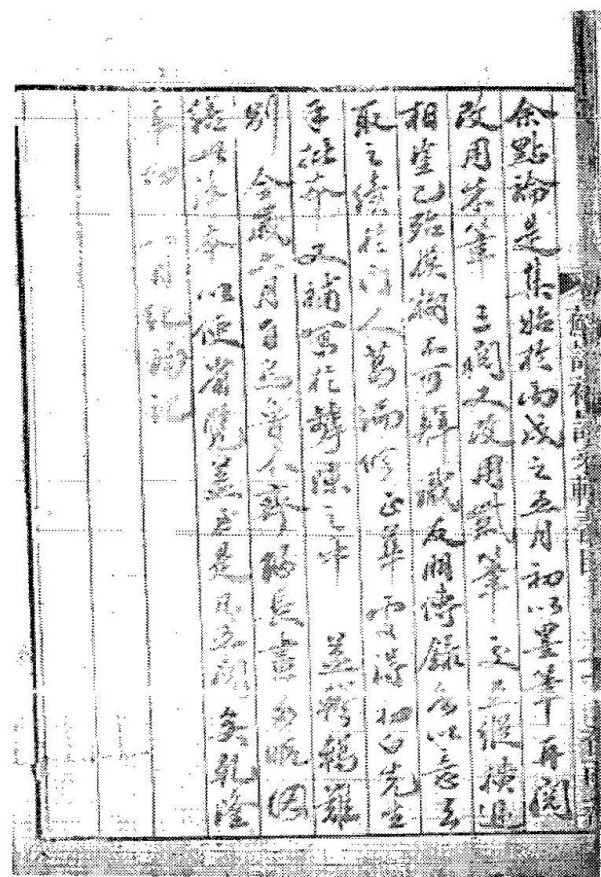 余點論是集始於丙戌之五月初以墨筆再閱
改用朱筆三閱又改用紫筆交互縱横遞
相塗乙殆模糊不可辨識友朋傳錄各以意去
取之續於門人葛編修正華處得初白先生
手批本又補寫於罅隙之中益轇轕難
別今歲六月自烏魯木齊歸長晝多暇因
繕此淨本以便省覽蓋至是凡五閱矣乾隆
辛卯八月紀昀記